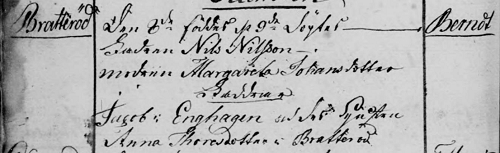 Bratteröd Den 8de föddes och 9de Döptes Berndt
Fadren Nils Nilsson
modren Margareta Johansdotter
Faddrar
Jacob i Enghagen
Anna Thoresdotter i Bratteröd